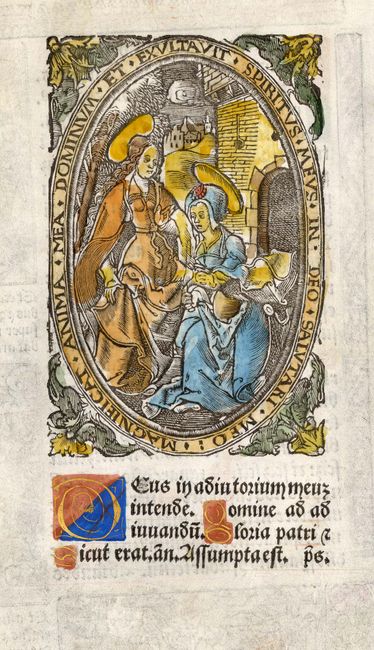 MAGNIFICAT · ANIMA · MEA · DOMINUM · ET · EXVLTAVIT · SPIRITVS · MEVS · IN · DEO · SALVTARI · MEO :
Deus in adiutorium meuz
intende. Domine ad ad
iuuandū. Gloria patri ⁊
Sicut erat. añ. Assumpta est. p̄s.